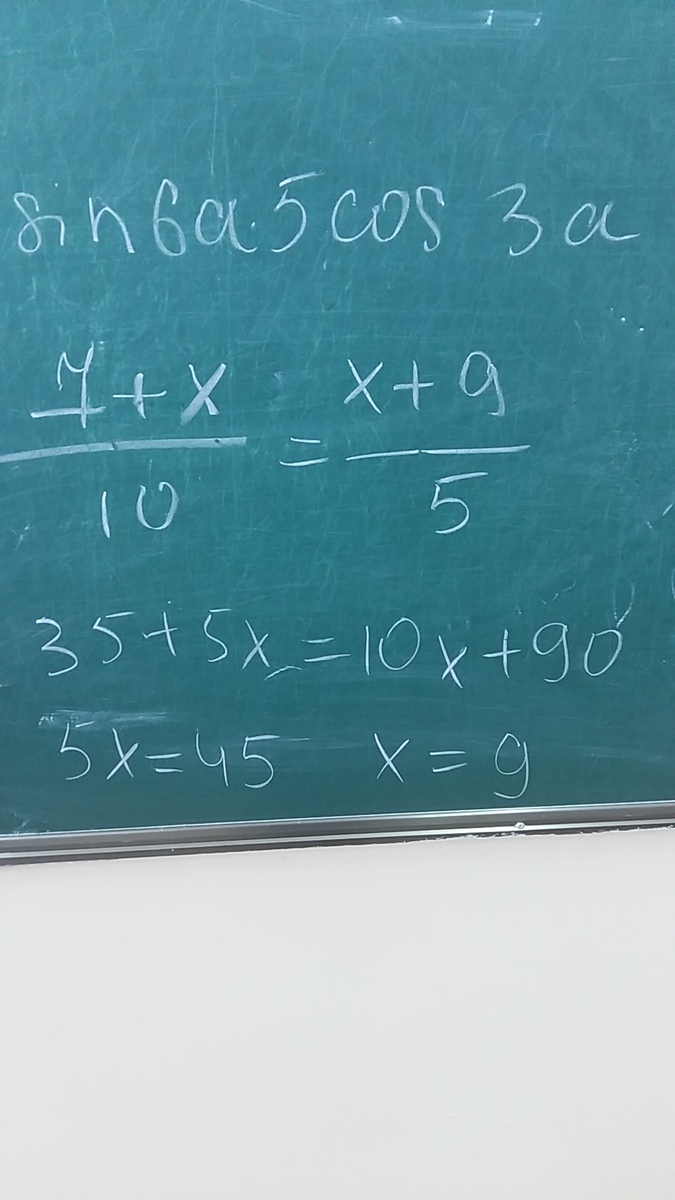 sin6a·5cos 3a
7+x/10 = x+9/5
35+5x=10x+90
5x=45 x=9